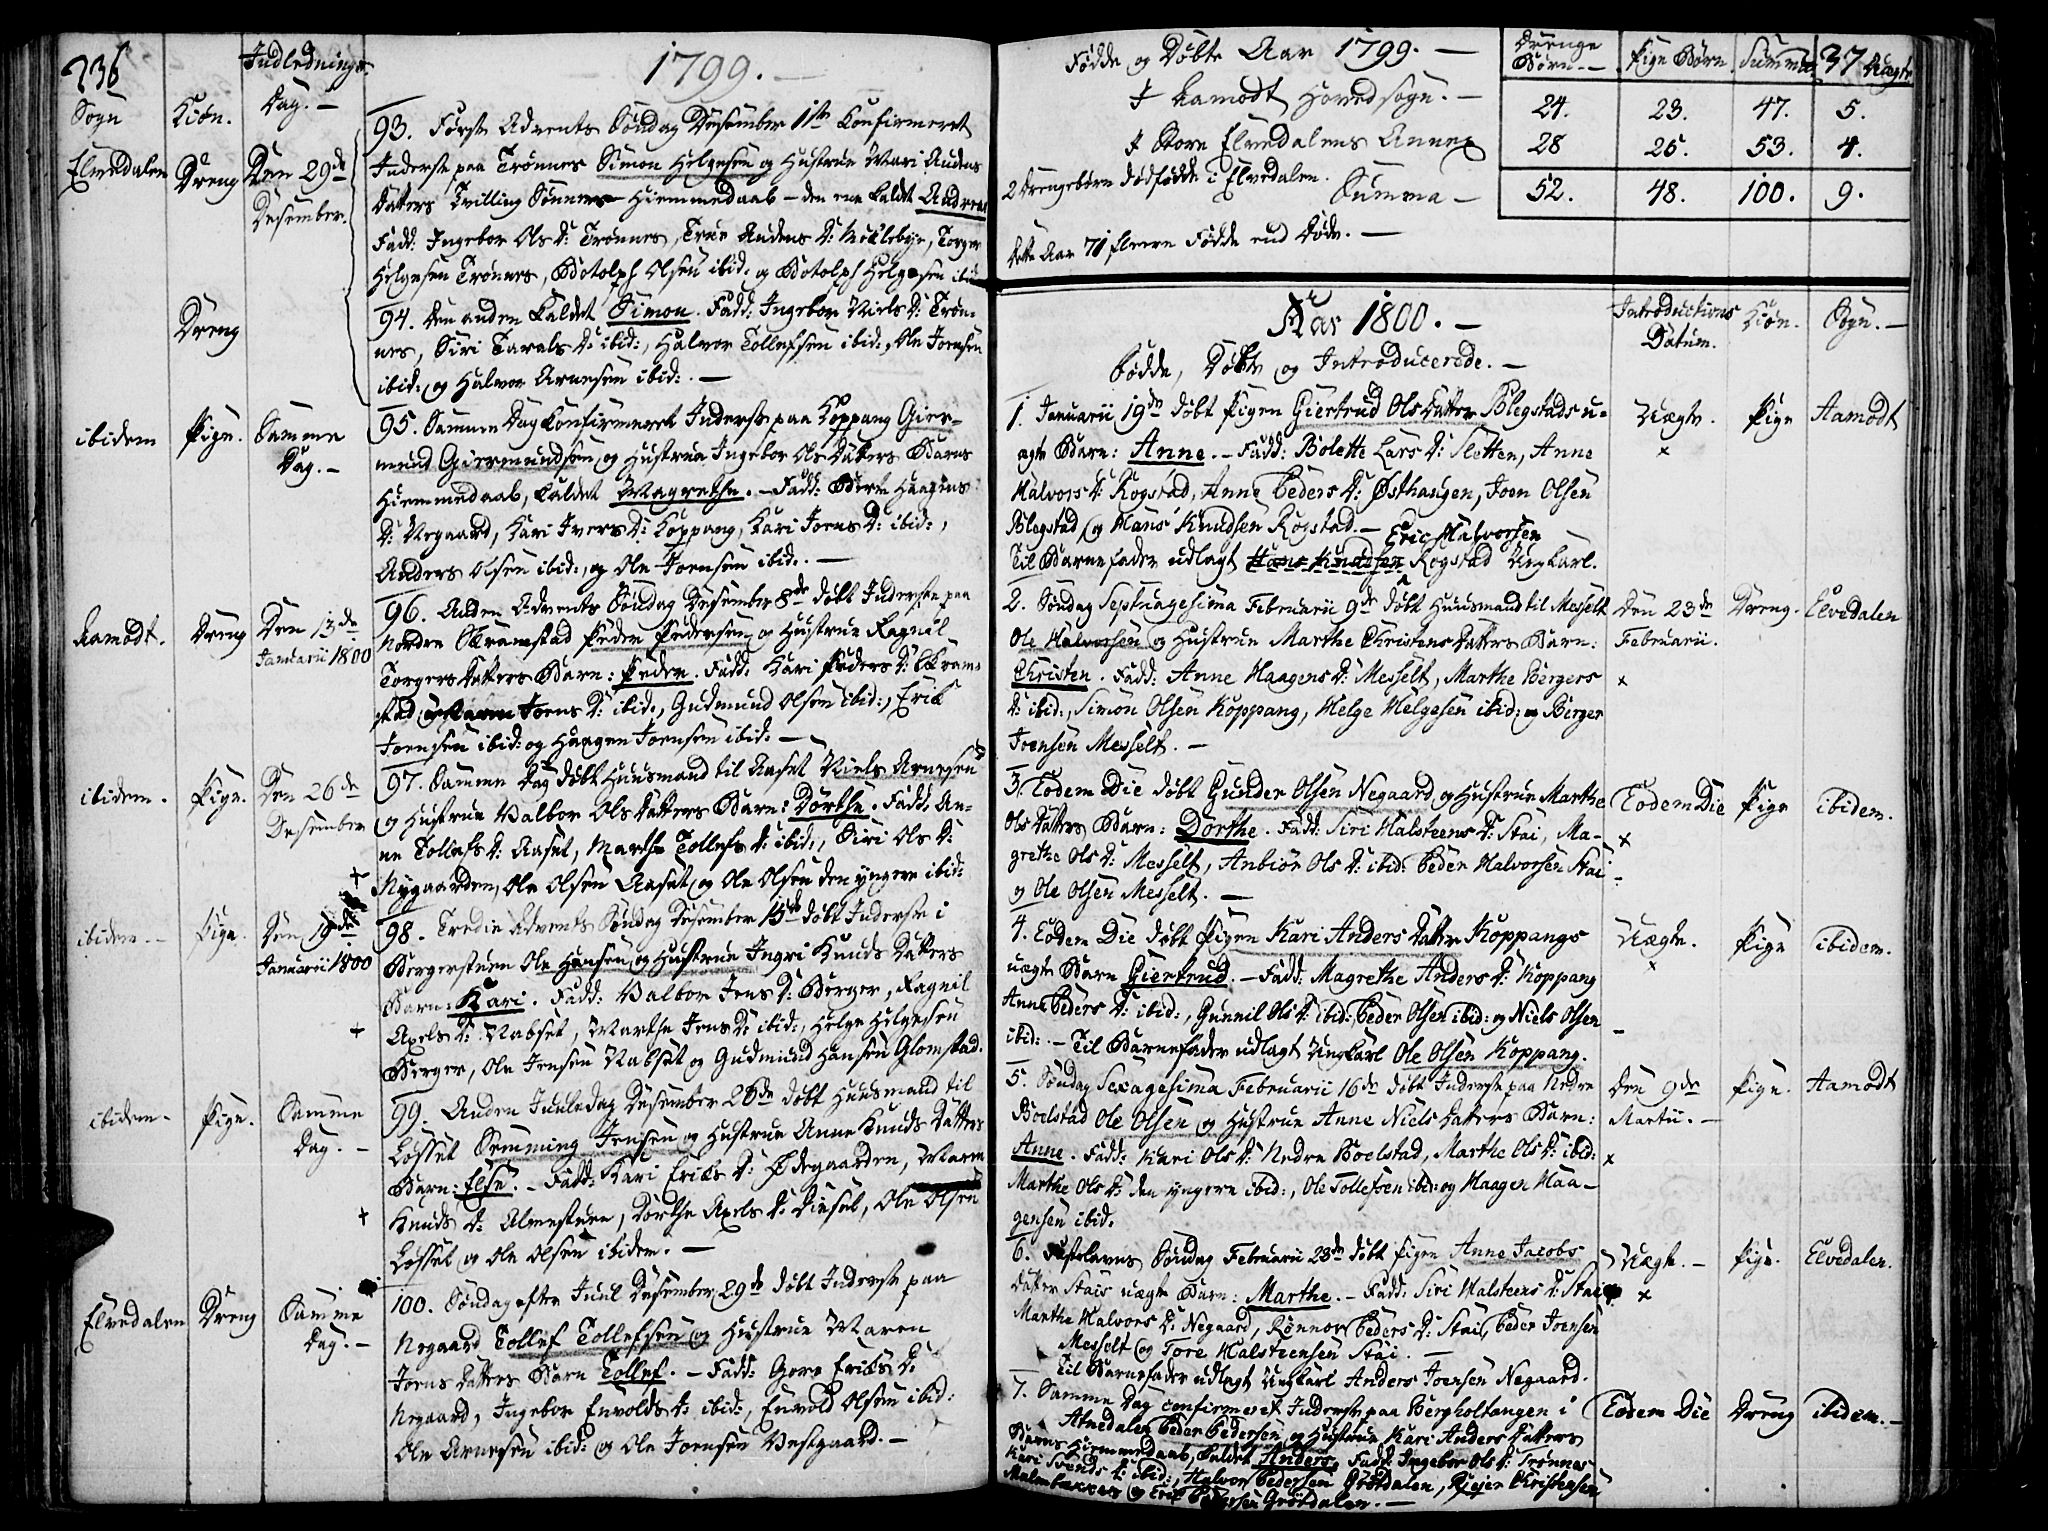 236
1799. —
Sogn
Kiøn.
Indlednings
Dag. —
Elvedalen
Dreng
Den 29de
Desember.
93. Første Advents Søndag Desember 1ste Confirmeret
Inderste paa Trønnes Simon Helgesen og Hustrue Mari Audens
Datters Tvilling Sønners Hiemmedaab – den ene kaldet Andreas
Fadd: Ingebor Ols D: Trønnes, Audens D: Møklebye, Torger
Helgesen Trønnes, Botolph Olsen ibid: og Botolph Helgesen ibid:
Dreng
94. Den anden kaldet Simon. Fadd: Ingebor Niels D: Trøn-
nes, Siri Tarals D: ibid:, Halvor Tollefsen ibid:, Ole Joensen
ibid: og Halvor Arnesen ibid:. —
ibidem
Pige.
Samme
Dag. —
95. Samme Dag Confirmeret Inderste paa Koppang Gier-
mund Giermundsen og Hustrue Ingebor Ols Datters Barns
Hiemmedaab, kaldet Magrethe. – Fadd: Berte Haagens
D: Negaard, Kari Ivers D: Koppang, Kari Joens D: ibid:,
Anders Olsen ibid:, og Ole Joensen ibid:. —
Aamodt.
Dreng
Den 13de
Januarii 1800
96. Anden Advents Søndag Desember 8de døbt Inderste paa
Nordre Skramstad Peder Pedersen og Hustrue Ragnil
Torgers Datters Barn: Peder. Fadd: Kari Peders D: Skram-
stad, Joens D: ibid:, Gudmund Olsen ibid:, Erik
Joensen ibid: og Haagen Joensen ibid: —
ibidem.
Pige.
Den 26de
Desember
+
97. Samme Dag døbt Huusmand til Aaset Niels Arnesen
og Hustrue Valbor Ols Datters Barn: Dorthe. Fadd: An-
ne Tollefs D: Aaset, Marthe Tollefs D: ibid:, Siri Ols D:
Nygaarden, Ole Olsen Aaset og Ole Olsen den yngere ibid:
ibidem. –
Pige.
Den 19de
Januarii 1800
+
98. Tredie Advents Søndag Desember 15de døbt Inderste i
Bergerstuen Ole Hansen og Hustrue Ingri Knuds Datters
Barn: Kari. Fadd: Valbor Jens D: Berger, Ragnil
Axels D: Nabset, Marthe Jens D: ibid:, Helge Helgesen
Berger, Ole Jensen Nabset og Gudmund Hansen Glomstad.
ibidem –
Pige.
Samme
Dag. –
+
99. Anden Juuledag Desember 26de døbt Huusmand til
Løsset Semming Jensen og Hustrue Anne Knuds Datters
Barn: Else. – Fadd: Kari Eriks D: Ødegaarden, Maren
Knuds D: Almestuen, Dorthe Axels D: Diset, Ole Olsen
Løsset og Ole Olsen ibidem. —
Elvedalen
Dreng
Samme
Dag. —
100. Søndag efter Juul Desember 29de døbt Inderste paa
Negaard Tollef Tollefsen og Hustrue Maren
Joens Datters Barn Tollef. – Fadd: Goro Eriks D:
Negaard, Ingebor Envolds D: ibid:, Envold Olsen ibid:
Ole Arnesen ibid: og Ole Joensen Vestgaard. —
Fødde og Døbte Aar 1799. —
Drenge
Børn. –
Pige Børn
Summa
37
Uægte
I Aamodt Hovedsogn. —
24. 23. 47. 5.
I Store Elvedalens Annex
28 25. 53. 4.
2 Drengebørn dødfødde i Elvedalen. Summa –
52. 48. 100. 9.
Dette Aar 71 fleere Fødde end Døde. —
Aar 1800. —
Fødde, Døbte og Introducerede. —
Introductions
Datum.
Kiøn.
Sogn. —
1. Januarii 19de døbt Pigen Giertrud Ols Datter Blegstads u-
ægte Barn: Anne. – Fadd: Bolette Lars D: Sletten, Anne
Halvors D: Rogstad, Anne Peders D: Østhaugen, Joen Olsen
Blegstad og Hans Knudsen Rogstad. —
Eric Halvorsen
Til Barnefader udlagt Hans Knudsen Rogstad Ungkarl.
Uægte.
×
Pige
Aamodt
2. Søndag Septuagesima Februarii 9de døbt Huusmand til Messelt
Ole Halvorsen og Hustrue Marthe Christens Datters Barn:
Christen. Fadd: Anne Haagens D: Messelt, Marthe Bergers
D: ibid:, Simon Olsen Koppang, Helge Helgesen ibid: og Berger
Joensen Messelt. —
Den 23de
Februarii.
×
Dreng.
Elvedalen
3. Eodem Die døbt Gunder Olsen Negaard og Hustrue Marthe
Ols Datters Barn: Dorthe. Fadd: Siri Halsteens D: Stai, Ma-
grethe Ols D: Messelt, Anbiør Ols D: ibid: Peder Halvorsen Stai
og Ole Olsen Messelt. —
Eodem Die
×
Pige
ibidem.
4. Eodem Die døbt Pigen Kari Anders Datter Koppangs
uægte Barn Giertrud. – Fadd: Magrethe Anders D: Koppang
Anne Peders D: ibid:, Gunnil Ols D: ibid:, Peder Olsen ibid: og Niels Olsen
ibid: – Til Barnefader udlagt Ungkarl Ole Olsen Koppang.
Uægte.
×
Pige
ibidem.
5. Søndag Sexagesima Februarii 16de døbt Inderste paa Nedre
Boelstad Ole Olsen og Hustrue Anne Niels Datters Barn:
Anne. Fadd: Kari Ols D: Nedre Boelstad, Marthe Ols D: ibid:
Marthe Ols D: den yngere ibid:, Ole Tollefsen ibid: og Haagen Haa-
gensen ibid:
Den 9de
Martii. —
×
Pige.
Aamodt
6. Fastelavens Søndag Februarii 23de døbt Pigen Anne Jacobs
Datter Stais uægte Barn: Marthe. – Fadd: Siri Halsteens D: Stai
Marthe Halvors D: Negaard, Rønnov Peders D: Stai, Peder Joensen
Messelt og Tore Halsteensen Stai. —
Til Barnefader udlagt Ungkarl Anders Joensen Negaard.
Uægte. –
×
Pige.
Elvedalen.
7. Samme Dag confirmeret Inderste paa Bergholtangen i
Atnedalen Peder Pedersen og Hustrue Kari Anders Datters
Barns Hiemmedaab, kaldet Anders. Fadd: Ingebor Ols D: Trønnes
Kari Svends D: ibid:, Halvor Pedersen Grötdalen, Christensen
og Erik Pedersen Grötdalen. —
Eodem Die
Dreng
ibidem. —